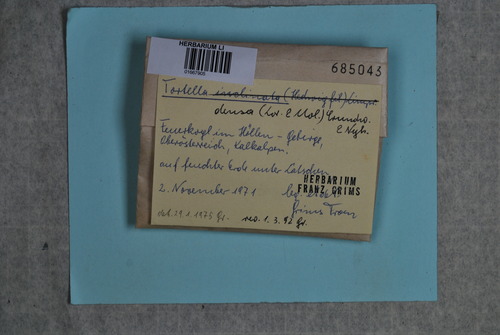 HERBARIUM LI
685043
Tortella inclinata (Hedwig fil) Limpr
densa (Lor. & Mol.) Crundw. & Nyh.
Feuerkogel im Höllen-gebirge,
Oberösterreich, Kalkalpen.
auf feuchter Erde unter Latschen
HERBARIUM
FRANZ GRIMS
2. November 1971 leg. et det.
Grims Franz
rev. 1.3.92 Gr.